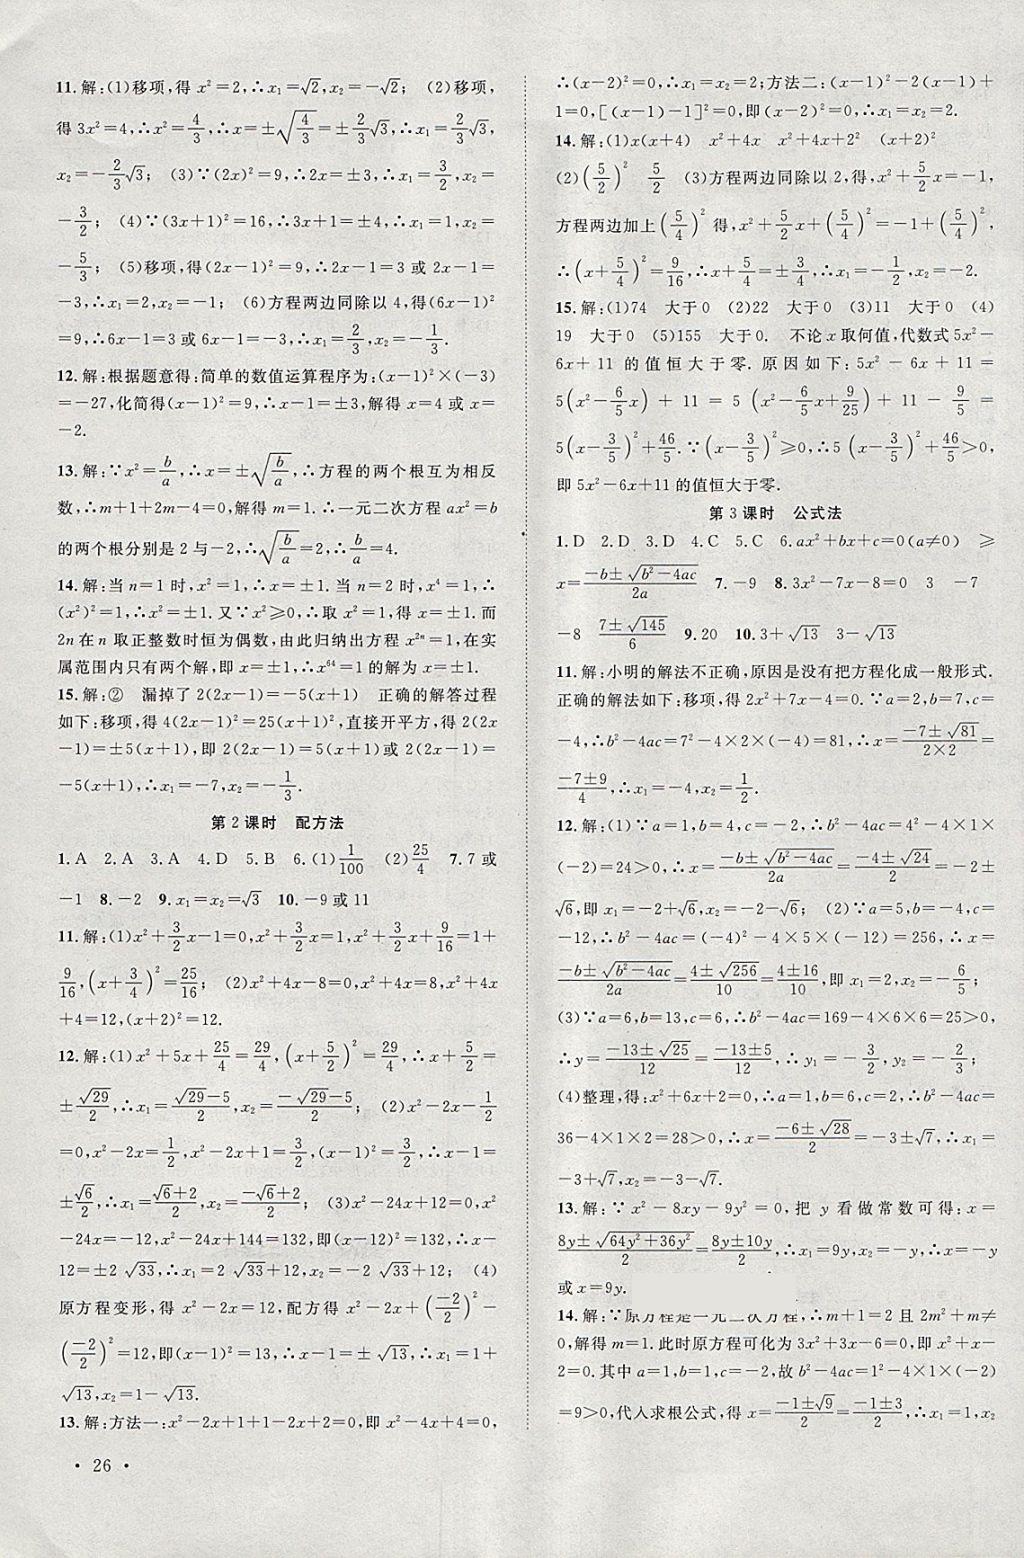 11.解:(1)移项,得 x²=2,∴x₁=√2,x₂=-√2; (2)移项,
得 3x²=4,∴x²=4/3,∴x=±√(4/3)=±2/3√3,∴x₁=2/3√3,
x₂=-2/3√3; (3)∵(2x)²=9,∴2x=±3,∴x₁=3/2,x₂=
-3/2; (4)∵(3x+1)²=16,∴3x+1=±4,∴x₁=1,x₂=
-5/3; (5)移项,得(2x-1)²=9,∴2x-1=3 或 2x-1=
-3,∴x₁=2,x₂=-1; (6)方程两边同除以 4,得(6x-1)²
=9,∴6x-1=3 或 6x-1=-3,∴x₁=2/3,x₂=-1/3.
12.解:根据题意得:简单的数值运算程序为:(x-1)²×(-3)
=-27,化简得(x-1)²=9,∴x-1=±3,解得 x=4 或 x=
-2.
13.解:∵x²=b/a,∴x=±√(b/a),∴方程的两个根互为相反
数,∴m+1+2m-4=0,解得 m=1.∴一元二次方程 ax²=b
的两个根分别是 2 与-2,∴√(b/a)=2,∴b/a=4.
14.解:当 n=1 时,x²=1,∴x=±1.当 n=2 时,x⁴=1,∴
(x²)²=1,∴x²=±1.又∵x²≥0,∴取 x²=1,得 x=±1.而
2n 在 n 取正整数时恒为偶数,由此归纳出方程 x²ⁿ=1,在实
属范围内只有两个解,即 x=±1,∴x⁶⁴=1 的解为 x=±1.
15.解:② 漏掉了 2(2x-1)=-5(x+1) 正确的解答过程
如下:移项,得 4(2x-1)²=25(x+1)²,直接开平方,得 2(2x
-1)=±5(x+1),即 2(2x-1)=5(x+1)或 2(2x-1)=
-5(x+1),∴x₁=-7,x₂=-1/3.
第 2 课时 配方法
1.A 2.A 3.A 4.D 5.B 6.(1)1/100 (2)25/4 7.7 或
-1 8.-2 9.x₁=x₂=√3 10.-9或 11
11.解:(1)x²+3/2x-1=0,x²+3/2x=1,x²+3/2x+9/16=1+
9/16,(x+3/4)²=25/16; (2)x²+4x-8=0,x²+4x=8,x²+4x
+4=12,(x+2)²=12.
12.解:(1)x²+5x+25/4=29/4,(x+5/2)²=29/4,∴x+5/2=
±√29/2,∴x₁=(√29-5)/2,x₂=(-√29-5)/2; (2)x²-2x-1/2
=0,x²-2x=1/2,∴x²-2x+1=3/2,(x-1)²=3/2,∴x-1=
±√6/2,∴x₁=(√6+2)/2,x₂=(-√6+2)/2; (3)x²-24x+12=0,x²
-24x=-12,x²-24x+144=132,∴(x-12)²=132,∴x-
12=±2√33,∴x₁=2√33+12,x₂=-2√33+12; (4)
原方程变形,得 x²-2x=12,配方,得 x²-2x+(-2/2)²-
(-2/2)²=12,即(x-1)²=13,∴x-1=±√13,∴x₁=1+
√13,x₂=1-√13.
13.解:方法一:x²-2x+1+1-2x+2=0,即 x²-4x+4=0,
· 26 ·
∴(x-2)²=0,∴x₁=x₂=2;方法二:(x-1)²-2(x-1)+
1=0,[(x-1)-1]²=0,即(x-2)²=0,∴x₁=x₂=2.
14.解:(1)x(x+4) x²+4x x²+4x+2² (x+2)²
(2)(5/2)² 5/2 (3)方程两边同除以 2,得 x²+5/2x=-1,
方程两边加上(5/4)²得,x²+5/2x+(5/4)²=-1+(5/4)²,
∴(x+5/4)²=9/16,∴x+5/4=±3/4,∴x₁=-1/2,x₂=-2.
15.解:(1)74 大于 0 (2)22 大于 0 (3)11 大于 0 (4)
19 大于 0 (5)155 大于 0 不论 x 取何值,代数式 5x²-
6x+11 的值恒大于零.原因如下:5x²-6x+11=
5(x²-6/5x)+11=5(x²-6/5x+9/25)+11-9/5=
5(x-3/5)²+46/5.∵(x-3/5)²≥0,∴5(x-3/5)²+46/5>0,
即 5x²-6x+11 的值恒大于零.
第 3 课时 公式法
1.D 2.D 3.D 4.C 5.C 6.ax²+bx+c=0(a≠0) ≥
x=(-b±√(b²-4ac))/2a 7.-9 8.3x²-7x-8=0 3 -7
-8 (7±√145)/6 9.20 10.3+√13 3-√13
11.解:小明的解法不正确,原因是没有把方程化成一般形式.
正确的解法如下:移项,得 2x²+7x-4=0.∵a=2,b=7,c=
-4,∴b²-4ac=7²-4×2×(-4)=81,∴x=(-7±√81)/(2×2)=
(-7±9)/4,∴x₁=-4,x₂=1/2.
12.解:(1)∵a=1,b=4,c=-2,∴b²-4ac=4²-4×1×
(-2)=24>0,∴x=(-b±√(b²-4ac))/2a=(-4±√24)/2=-2±
√6,即 x₁=-2+√6,x₂=-2-√6; (2)∵a=5,b=-4,c=
-12,∴b²-4ac=(-4)²-4×5×(-12)=256,∴x=
(-b±√(b²-4ac))/2a=(4±√256)/10=(4±16)/10,即 x₁=2,x₂=-6/5;
(3)∵a=6,b=13,c=6,∴b²-4ac=169-4×6×6=25>0,
∴y=(-13±√25)/12=(-13±5)/12,∴y₁=-3/2,y₂=-2/3;
(4)整理,得:x²+6x+2=0,∴a=1,b=6,c=2,∴b²-4ac=
36-4×1×2=28>0,∴x=(-6±√28)/2=-3±√7,∴x₁=
-3+√7,x₂=-3-√7.
13.解:∵x²-8xy-9y²=0,把 y 看做常数可得:x=
(8y±√(64y²+36y²))/2=(8y±10y)/2,∴x=9y,x=-y,∴x=-y
或 x=9y.
14.解:∵原方程是一元二次方程,∴m+1=2 且 2m²+m≠
0,解得 m=1.此时原方程可化为 3x²+3x-6=0,即 x²+x-
2=0.其中 a=1,b=1,c=-2,故 b²-4ac=1²-4×1×(-2)
=9>0,代人求根公式,得 x=(-1±√9)/2=(-1±3)/2,∴x₁=1,x₂